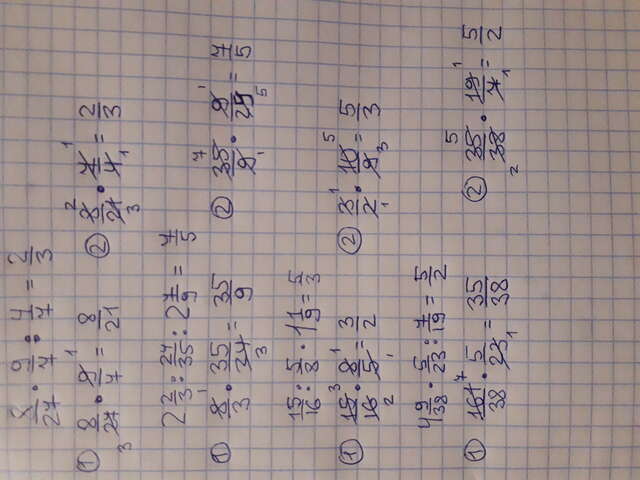 8/27 · 9/7 : 4/7 = 2/3
① 8/27 · 9/7 = 8/21 ② 8/21 · 7/4 = 2/3
2 2/3 : 24/35 : 2 7/9 = 7/5
① 8/3 · 35/24 = 35/9 ② 35/9 · 9/25 = 7/5
15/16 : 5/8 · 1 1/9 = 5/3
① 15/16 · 8/5 = 3/2 ② 3/2 · 10/9 = 5/3
4 9/38 · 5/23 : 7/19 = 5/2
① 161/38 · 5/23 = 35/38 ② 35/38 · 19/7 = 5/2